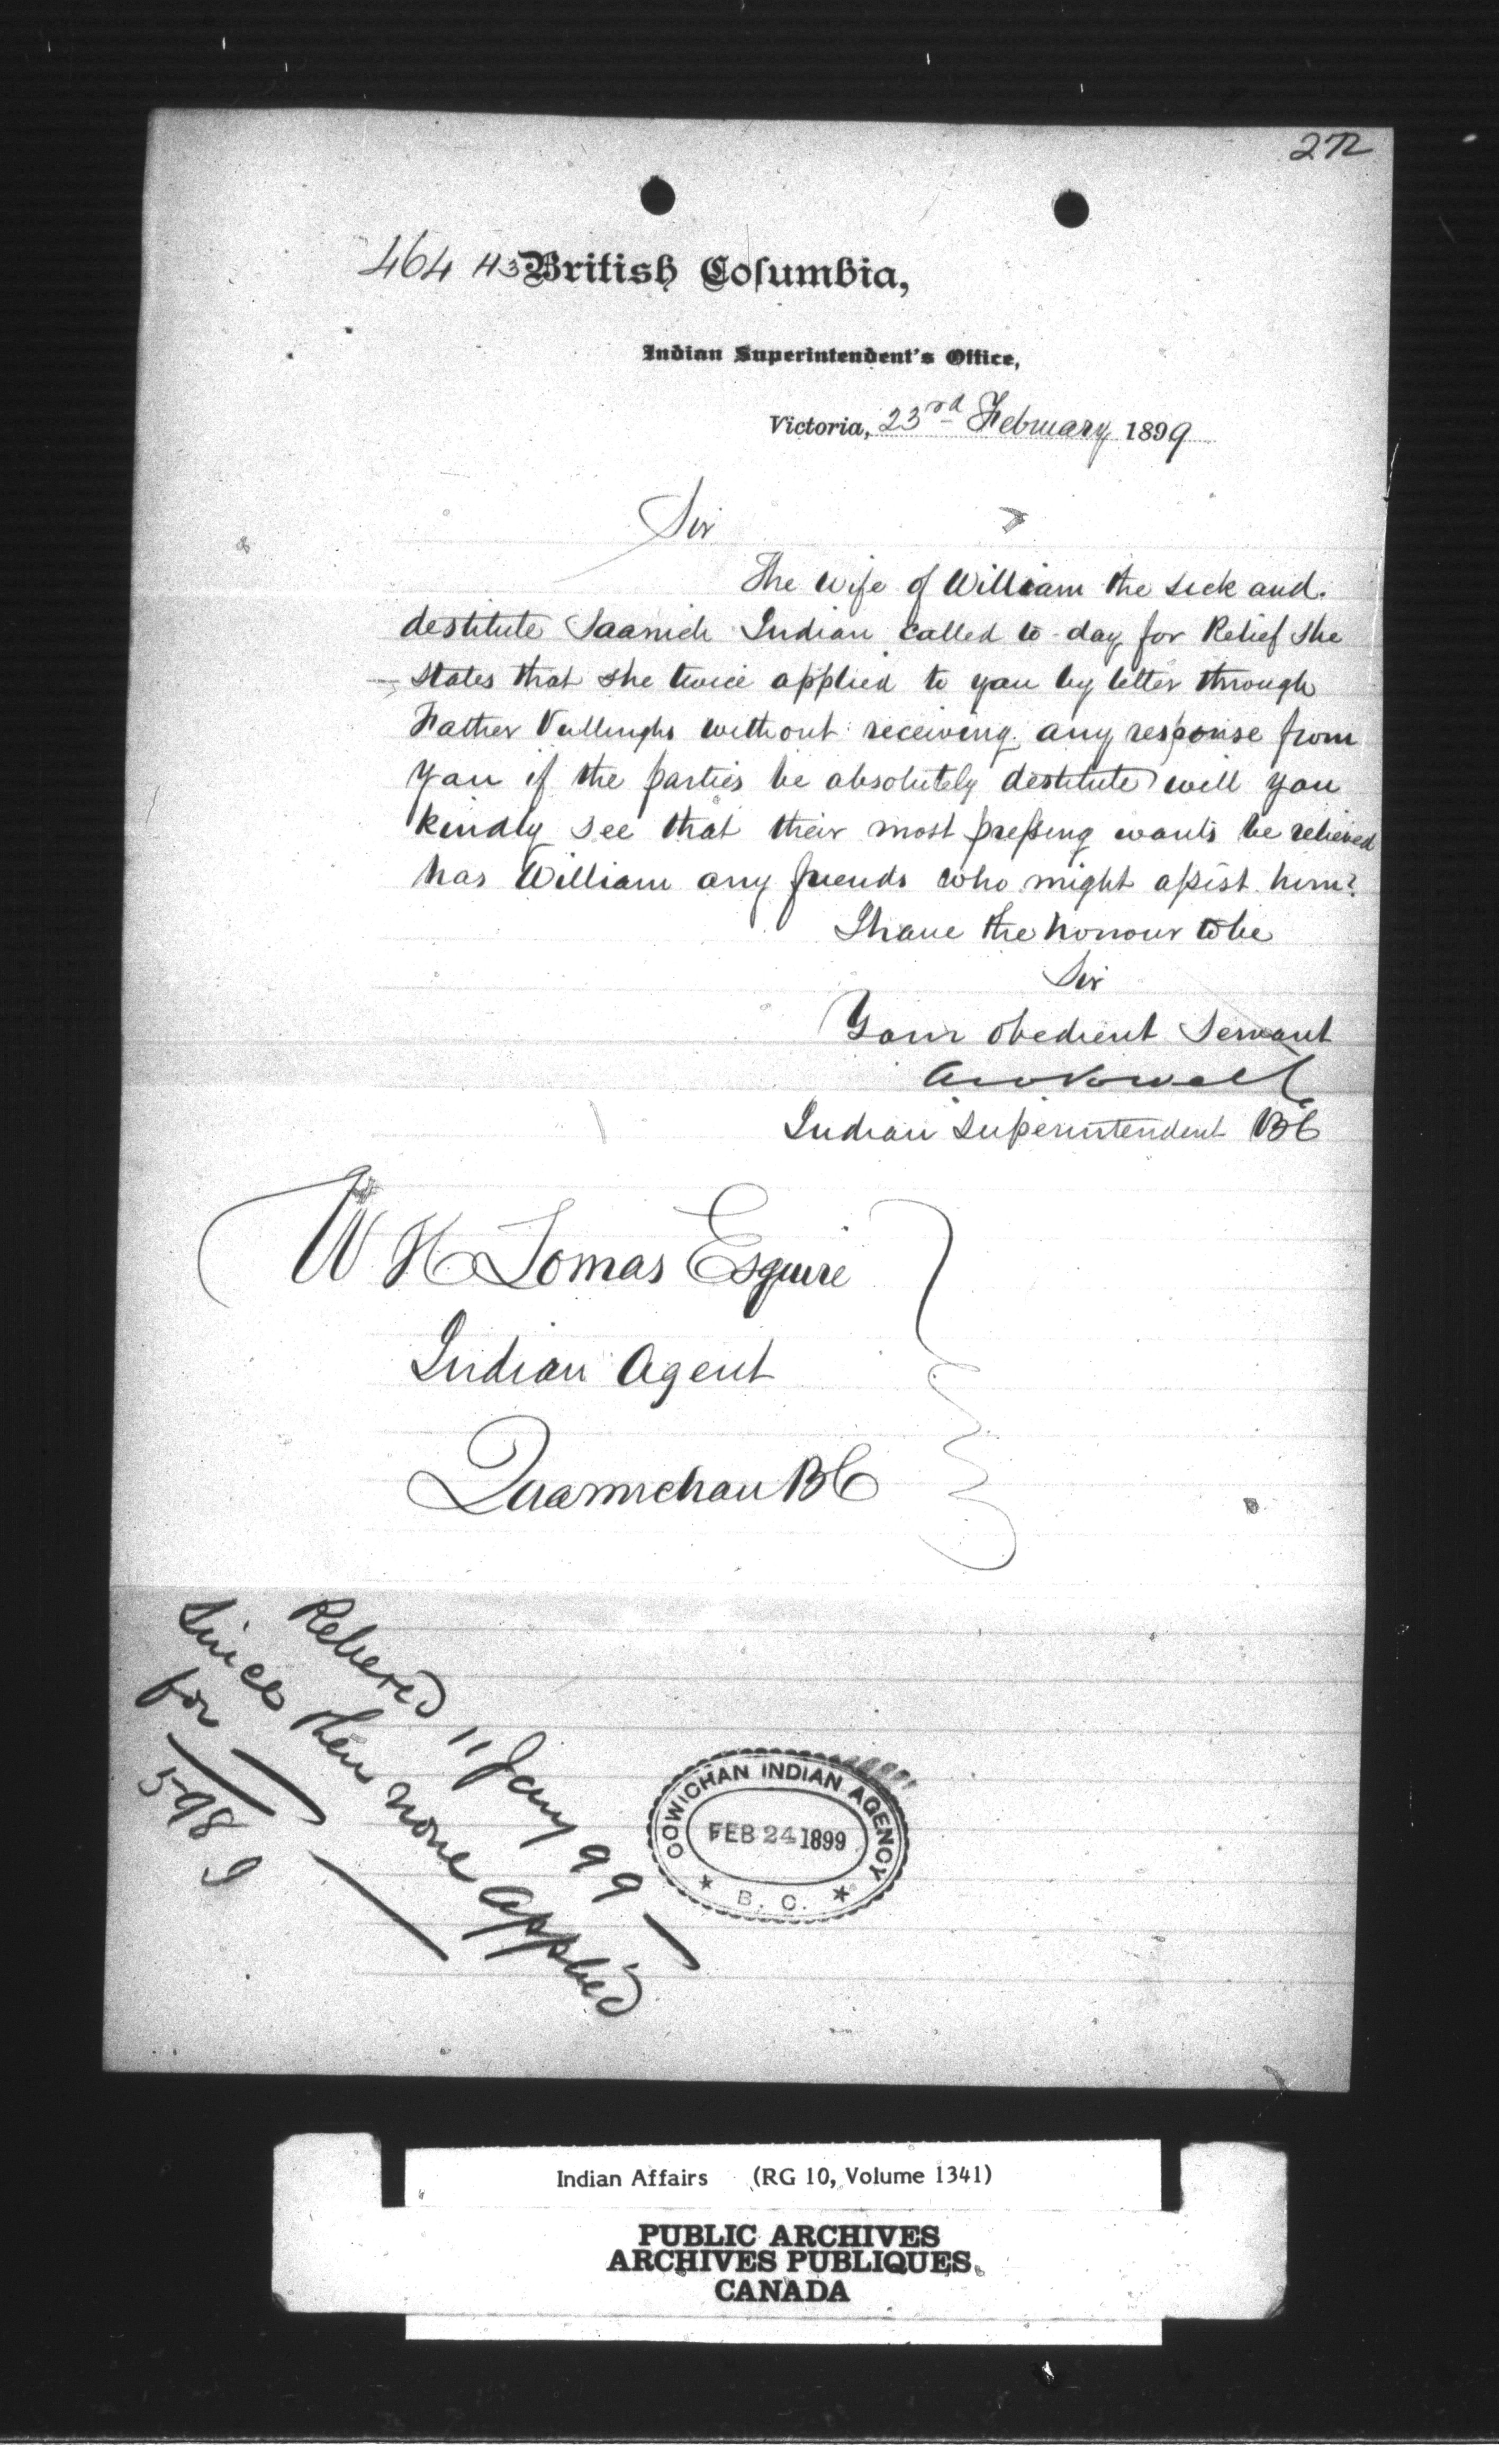 272
464 H3 British Columbia,
Indian Superintendent's Office,
Victoria, 23rd February 1899
Sir
The wife of William the sick and
destitute Saanich Indian called to-day for Relief she
states that she twice applied to you by letter through
Father Vullinghs without receiving any response from
you if the parties be absolutely destitute will you
kindly see that their most pressing wants be relieved
has William any friends who might assist him?
I have the honour to be
Sir
Your obedient Servant
A W Vowell
Indian Superintendent BC
W H Lomas Esquire
Indian Agent
Quamichan BC
Relieved 11 Jany 99
Since then none applied
for
598
COWICHAN INDIAN AGENCY
FEB 24 1899
B. C.
Indian Affairs (RG 10, Volume 1341)
PUBLIC ARCHIVES
ARCHIVES PUBLIQUES
CANADA